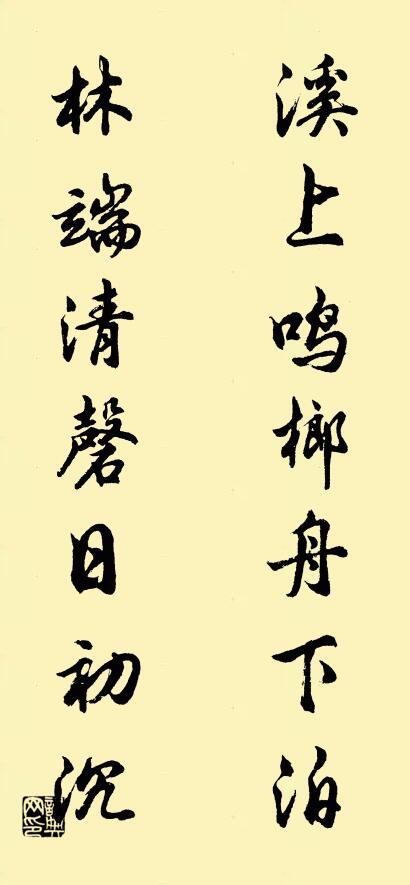 溪上鸣榔舟下泊
林端清磬日初沉